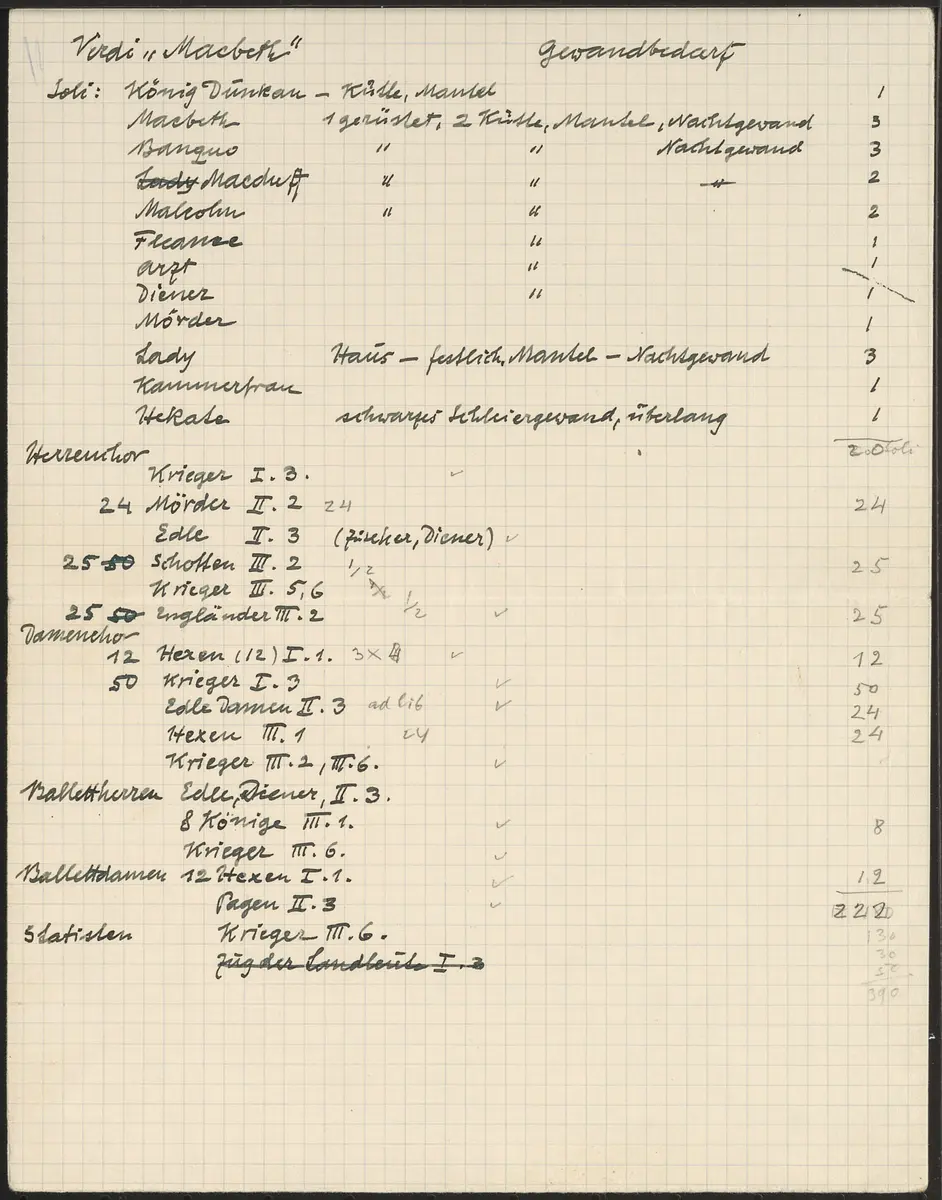 Verdi „Macbeth" Gewandbedarf
Soli: König Dunkan – Kütte, Mantel 1
Macbeth 1 gerüstet, 2 Kütte, Mantel, Nachtgewand 3
Banquo " " Nachtgewand 3
Lady Macduff " " " 2
Malcolm " " 2
Fleance " 1
Arzt " 1
Diener " 1
Mörder 1
Lady Haus – festlich, Mantel – Nachtgewand 3
Kammerfrau 1
Hekate schwarzes Schleiergewand, überlang 1
20 Soli
Herrenchor
Krieger I. 3.
24 Mörder II. 2 24 24
Edle II. 3 (Fischer, Diener)
25 50 Schotten III. 2 1/2 25
Krieger III. 5, 6 1/2
25 50 Engländer III. 2 1/2 25
Damenchor
12 Hexen (12) I. 1. 3 x 4 12
50 Krieger I. 3 50
Edle Damen II. 3 ad lib 24
Hexen III. 1 24 24
Krieger III. 2, III. 6.
Ballettherren Edle, Diener, II. 3.
8 Könige III. 1. 8
Krieger III. 6.
Ballettdamen 12 Hexen I. 1. 12
Pagen II. 3 222
Statisten Krieger III. 6. 130
30
Zug der Landleute I. 3
390